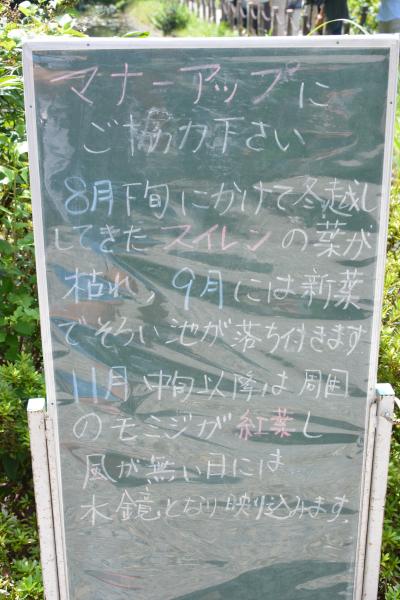 マナーアップに
ご協力下さい
8月下旬にかけて冬越し
してきたスイレンの葉が
枯れ,9月には新葉
でそろい池が落ち付きます.
11月中旬以降は周囲
のモミジが紅葉し
風が無い日には…
水鏡となり映り込みます.